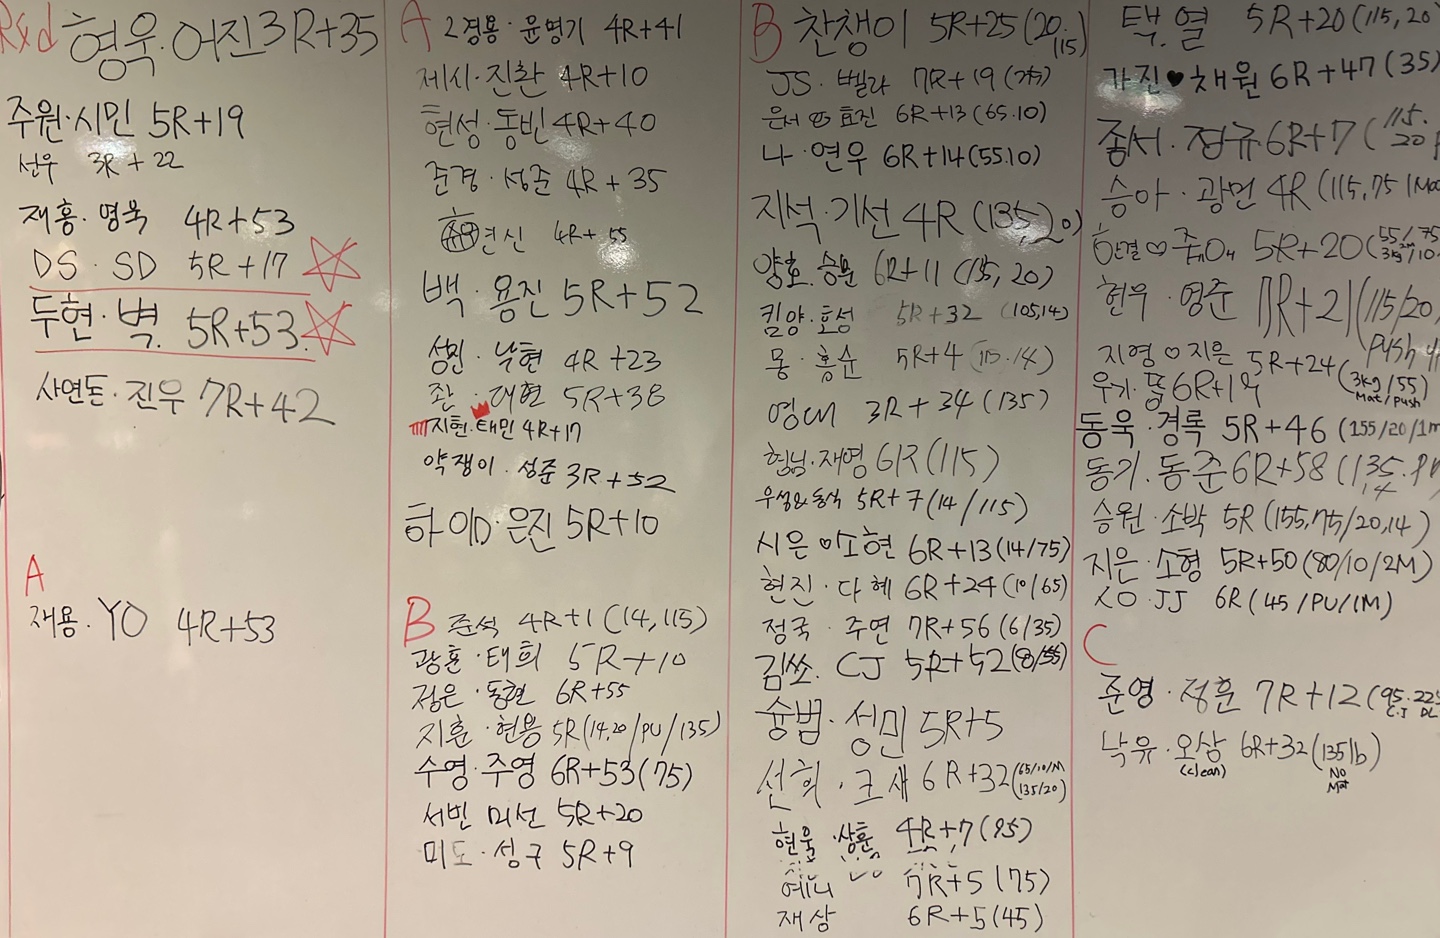 Rxd 형욱·어진 3R+35
주원·시민 5R+19
선우 3R+22
재홍·명욱 4R+53
DS·SD 5R+17
두현·벽. 5R+53.
사연돈·진우 7R+42
A
재용·YO 4R+53
A 2경용·윤명기 4R+41
제시·진환 4R+10
현성·동빈 4R+40
준경·성준 4R+35
연신 4R+55
백·용진 5R+52
성민·낙현 4R+23
존·대현 5R+38
지현·태민 4R+17
약쟁이·성준 3R+52
하이D·은진 5R+10
B 준석 4R+1 (14,115)
광훈·태희 5R+10
정은·동현 6R+55
지훈·현용 5R(14,20/PU/135)
수영·주영 6R+53(75)
서빈 미선 5R+20
미도·성구 5R+9
B 찬챙이 5R+25(20·115)
JS·벨라 7R+19
은서 효진 6R+13(65.10)
나·연우 6R+14(55.10)
지석·기선 4R(135,20)
양호·승문 6R+11 (135,20)
킴양·효성 5R+32 (105,14)
몽·홍순 5R+4 (115·14)
영대 3R+34(135)
형님·재영 6R(115)
우성&동식 5R+7(14/115)
시은♡소현 6R+13(14/75)
현진·다혜 6R+24(10/65)
정국·주연 7R+56(6/35)
김쏘. CJ 5R+52(8/55)
슝범·성민 5R+5
선희·크새 6R+32(65/10/M 135/20)
현욱·상훈 4R+7(95)
예니 7R+5(75)
재상 6R+5(45)
택.열 5R+20(115,20)
가진♥채원 6R+47(35)
종서·정규 6R+7(115.20
승아·광민 4R(115,75 1Mat
한결♡주 5R+20(55/75 3kg/10
현우·영준 7R+21(115/20)
push
지영♡지은 5R+24(3kg/55)
Mat/push
우가·뚬 6R+19
동욱·경록 5R+46(155/20/1m
동기·동준 6R+58(135.
14
승원·소박 5R(155,75/20,14)
지은·소형 5R+50(80/10/2M)
JJ 6R(45/PU/1M)
C
준영·정훈 7R+12(95·225
C.J DL
낙유·오상 6R+32(135lb)
(clean) No Mat